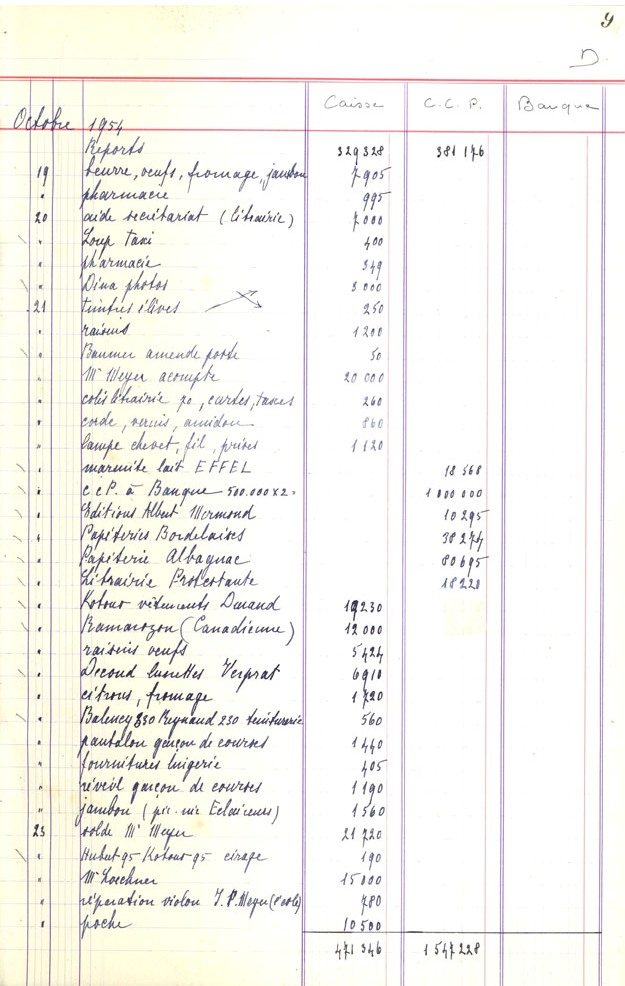 9
D.
Caisse C.C.P. Banque
Octobre 1954
Reports 329328 381176
19 beurre, oeufs, fromage, jambon 7905
" pharmacie 995
20 aide secrétariat (librairie) 7000
" Loup taxi 400
" pharmacie 349
" Dina photos 3000
21 timbres élèves 250
" raisins 1200
" Baumer amende poste 50
" Mr Meyer acompte 20000
" colis librairie po, cartes, taxes 260
" corde, vernis, amidon 860
" lampe chevet, fil, prises 1120
" marmite lait EFFEL 18568
" C.C.P. à Banque 500.000x2= 1000000
" Editions Albert Mermond 10295
" Papéteries Bordelaises 38274
" Papéterie Albagnac 80695
" Librairie Protestante 18220
" Kotour vêtements Durand 19230
" Ramarozon (Canadienne) 12000
" raisins oeufs 5424
" Decond lunettes Verprat 6910
" citrons, fromage 1720
" Balency 330 Reynaud 230 teinturerie 560
" pantalon garçon de courses 1440
" fournitures lingerie 405
" réveil garçon de courses 1190
" jambon (pic-nic Eclaireurs) 1560
23 solde Mr Meyer 21720
" Hubert 95 Kotour 95 cirage 190
" Mr Loechner 15000
" réparation violon J.P. Meyer 780
" poche 10500
471346 1547228